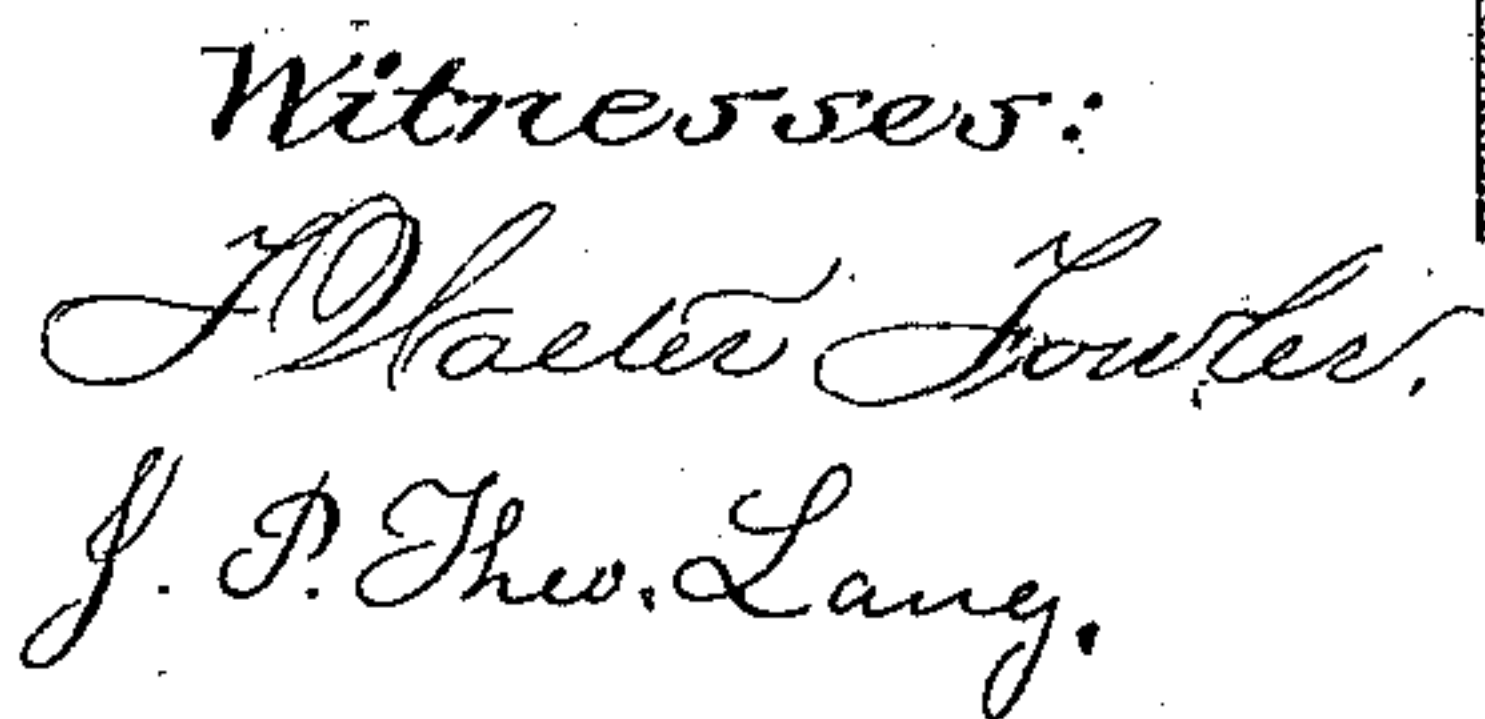 Witnesses:
F Walter Fowler.
J. P. Theo. Lang.